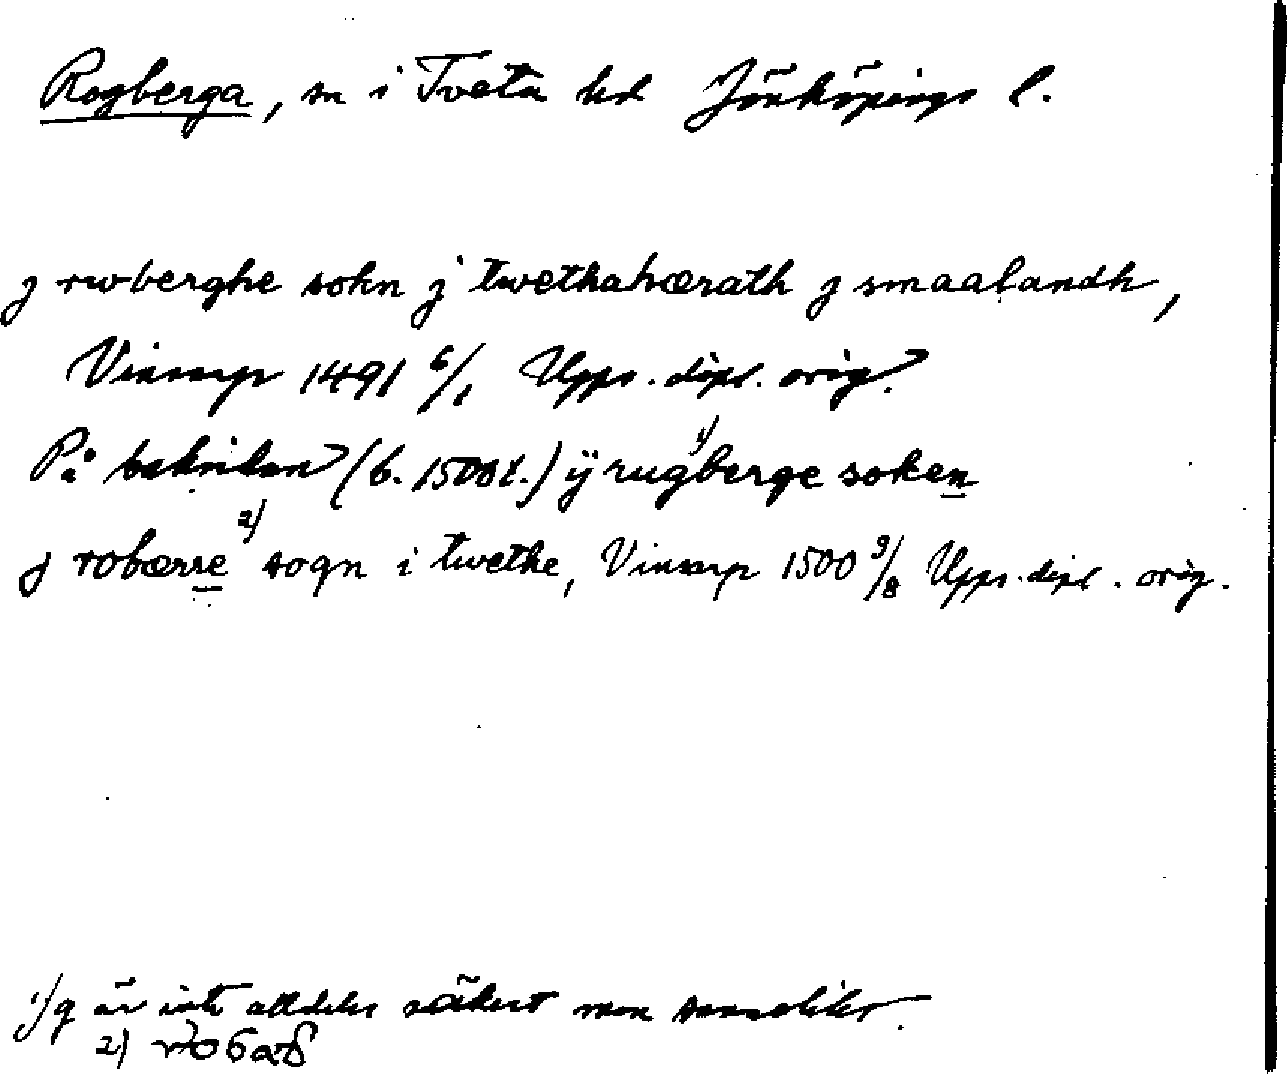 Rogberga, sn i Tveta hd Jönköpings l.
j rwberghe sokn j twethahærath j smaalandh,
Vinarp 1491 6/1 Upps. dipl. orig.
På baksidan (b. 1500t.) ÿ rug1)berge soken
j robærre 2) sogn i twethe, Vinarp 1500 9/8 Upps. dipl. orig.
1) g är inte alldeles säkert men sannolikt.
2)